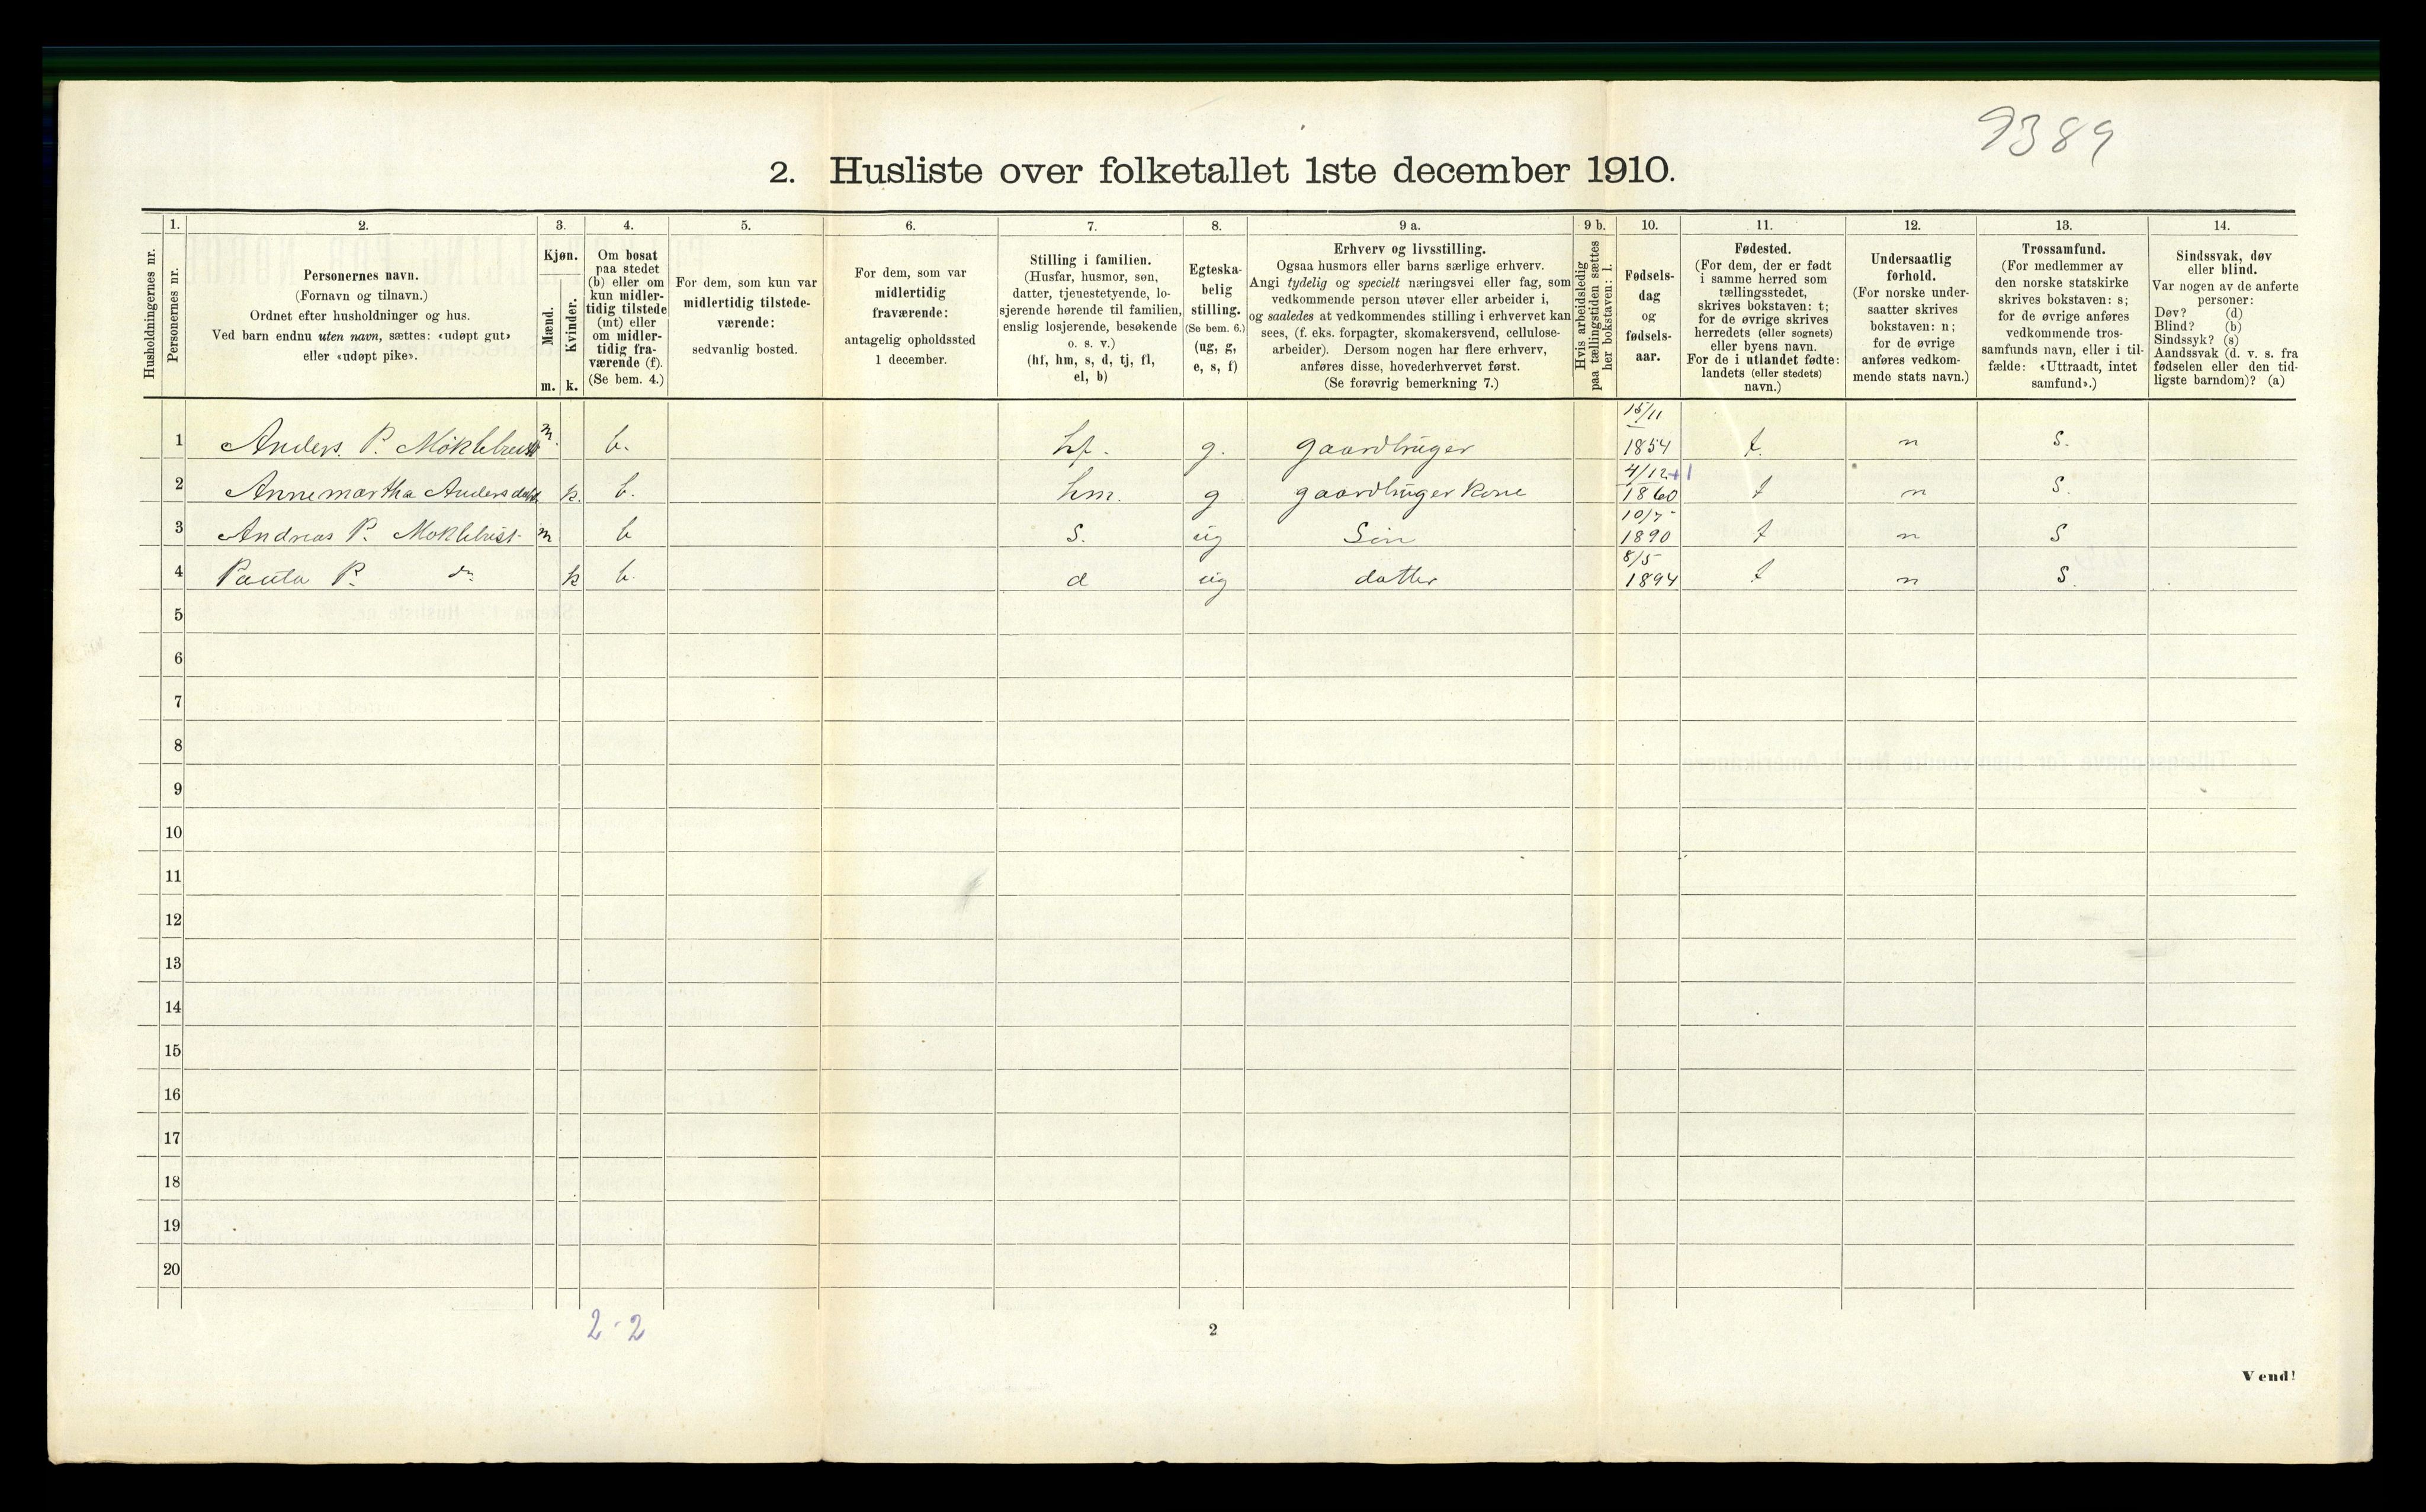 9389
2. Husliste over folketallet 1ste december 1910.
Husholdningernes nr.
1.
Personernes nr.
2.
Personernes navn.
(Fornavn og tilnavn.)
Ordnet efter husholdninger og hus.
Ved barn endnu uten navn, sættes: «udøpt gut»
eller «udøpt pike».
3.
Kjøn.
Mænd.
Kvinder.
m. k.
4.
Om bosat
paa stedet
(b) eller om
kun midler-
tidig tilstede
(mt) eller
om midler-
tidig fra-
værende (f).
(Se bem. 4.)
5.
For dem, som kun var
midlertidig tilstede-
værende:
sedvanlig bosted.
6.
For dem, som var
midlertidig
fraværende:
antagelig opholdssted
1 december.
7.
Stilling i familien.
(Husfar, husmor, søn,
datter, tjenestetyende, lo-
sjerende hørende til familien,
enslig losjerende, besøkende
o. s. v.)
(hf, hm, s, d, tj, fl,
el, b)
8.
Egteska-
belig
stilling.
(Se bem. 6.)
(ug, g,
e, s, f)
9 a.
Erhverv og livsstilling.
Ogsaa husmors eller barns særlige erhverv.
Angi tydelig og specielt næringsvei eller fag, som
vedkommende person utøver eller arbeider i,
og saaledes at vedkommendes stilling i erhvervet kan
sees, (f. eks. forpagter, skomakersvend, cellulose-
arbeider). Dersom nogen har flere erhverv,
anføres disse, hovederhvervet først.
(Se forøvrig bemerkning 7.)
9 b.
Hvis arbeidsledig
paa tællingstiden sættes
her bokstaven: l.
10.
Fødsels-
dag
og
fødsels-
aar.
11.
Fødested.
(For dem, der er født
i samme herred som
tællingsstedet,
skrives bokstaven: t;
for de øvrige skrives
herredets (eller sognets)
eller byens navn.
For de i utlandet fødte:
landets (eller stedets)
navn.)
12.
Undersaatlig
forhold.
(For norske under-
saatter skrives
bokstaven: n;
for de øvrige
anføres vedkom-
mende stats navn.)
13.
Trossamfund.
(For medlemmer av
den norske statskirke
skrives bokstaven: s;
for de øvrige anføres
vedkommende tros-
samfunds navn, eller i til-
fælde: «Uttraadt, intet
samfund».)
14.
Sindssvak, døv
eller blind.
Var nogen av de anførte
personer:
Døv? (d)
Blind? (b)
Sindssyk? (s)
Aandssvak (d. v. s. fra
fødselen eller den tid-
ligste barndom)? (a)
1 Anders. P. Møklebust m. b. hf. g. gaardbruger 15/11 1854 t. n s.
2 Annemartha Andersdatt k. b. hm. g gaardbruger kone 4/12 +1 1860 t n s.
3 Andreas P. Moklebust m b s. ug Sön 10/7 1890 t n s
4 Paula P. do k b. d ug datter 8/5 1894 t n s.
5
6
7
8
9
10
11
12
13
14
15
16
17
18
19
20
2-2
2
Vend!